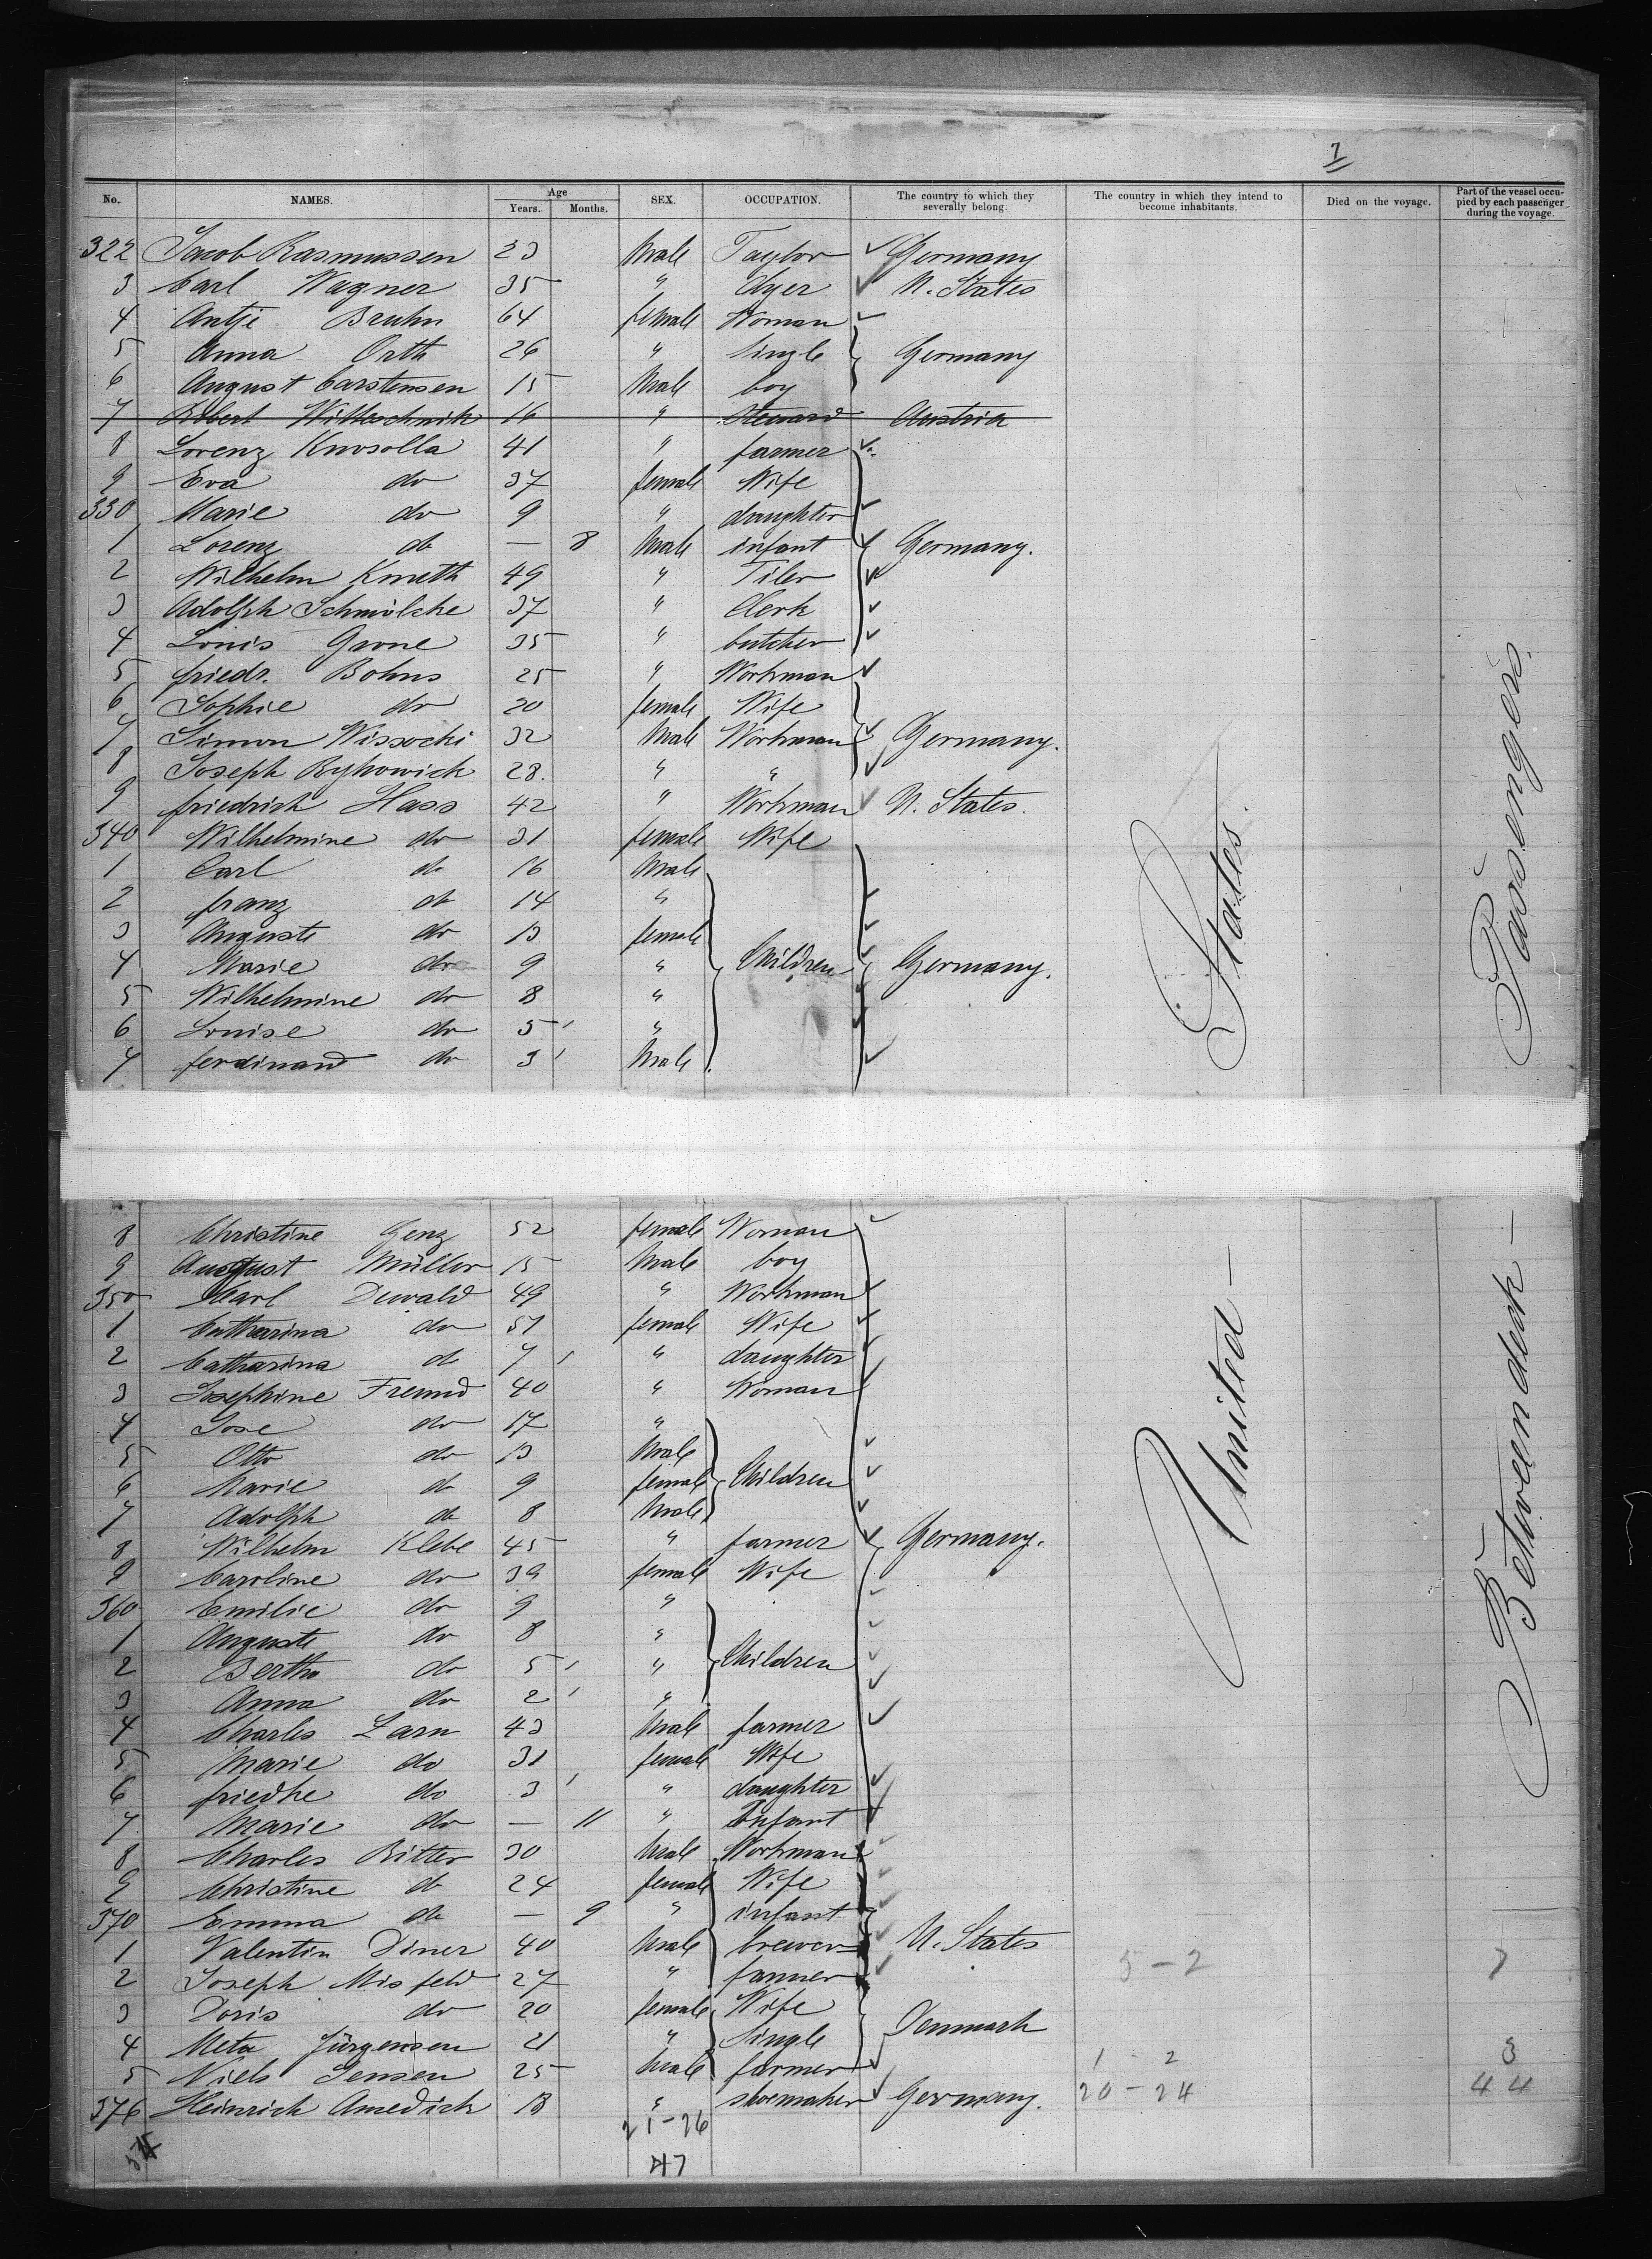 7
No. NAMES. Age Years. Months. SEX. OCCUPATION. The country to which they severally belong. The country in which they intend to become inhabitants. Died on the voyage. Part of the vessel occupied by each passenger during the voyage.
322 Jacob Rasmussen 23 Male Taylor Germany
3 Carl Wagner 35 " dyer U. States
4 Antje Bruhn 64 female Woman
5 Anna Orth 26 " Single Germany
6 August Carstensen 15 Male boy
7 Robert 16 " Steward Austria
8 Lorenz Knosolla 41 " farmer
9 Eva do 37 female Wife
330 Marie do 9 " daughter
1 Lorenz do — 8 Male infant Germany.
2 Wilhelm Kmeth 49 " Tiler
3 Adolph Schmölcke 37 " Clerk
4 Louis Grone 35 " butcher
5 friedr. Bohns 25 " Workman
6 Sophie do 20 female Wife
7 Simon Wissocki 32 Male Workman Germany.
8 Joseph Byhowick 28. " "
9 friedrich Hass 42 " Workman U. States.
340 Wilhelmine do 31 female Wife
1 Carl do 16 Male
2 franz do 14 "
3 Auguste do 13 female
4 Marie do 9 " Children Germany.
5 Wilhelmine do 8 "
6 Louise do 5 "
7 ferdinand do 3 Male
8 Christine Genz 52 female Woman
9 August Müller 15 Male boy
350 Carl Duwald 49 " Workman
1 Catharina do 51 female Wife
2 Catharina do 7 " daughter
3 Josephine Freund 40 " Woman
4 Jose do 17 "
5 Otto do 13 Male
6 Marie do 9 female Children
7 Adolph do 8 Male
8 Wilhelm Klebe 45 " farmer Germany.
9 Caroline do 39 female Wife
360 Emilie do 9 "
1 Auguste do 8 "
2 Bertha do 5 " Children
3 Anna do 2 "
4 Charles Larn 43 Male farmer
5 Marie do 31 female Wife
6 friedke do 3 " daughter
7 Marie do — 11 " Infant
8 Charles Ritter 30 Male Workman
9 Christine do 24 female Wife
370 Emma do — 9 " infant
1 Valentin Diner 40 Male brewer U. States
2 Joseph Misfeld 27 " farmer 5-2 7
3 Doris do 20 female Wife
4 Meta Jürgensen 21 " Single Denmark
5 Niels Jensen 25 Male farmer 1-2 3
376 Heinrich Amedick 18 " shoemaker Germany. 20-24 44
21-26
47
United States.
Between deck Passengers.